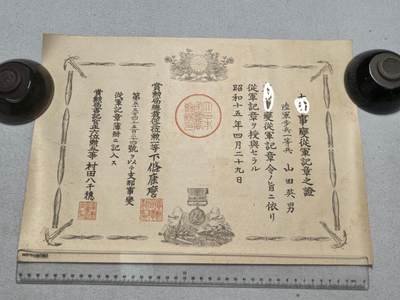 事變從軍記章之證
陸軍步兵一等兵 山田英男
變從軍記章令ノ旨ニ依リ
從軍記章ヲ授與セラル
昭和十五年四月二十九日
賞勳局總裁從 位勳一等下條康麿
ヲ以テ支那事變
從軍記章簿冊ニ記入ス
賞勳局書記官 位勳 等村田八千穗